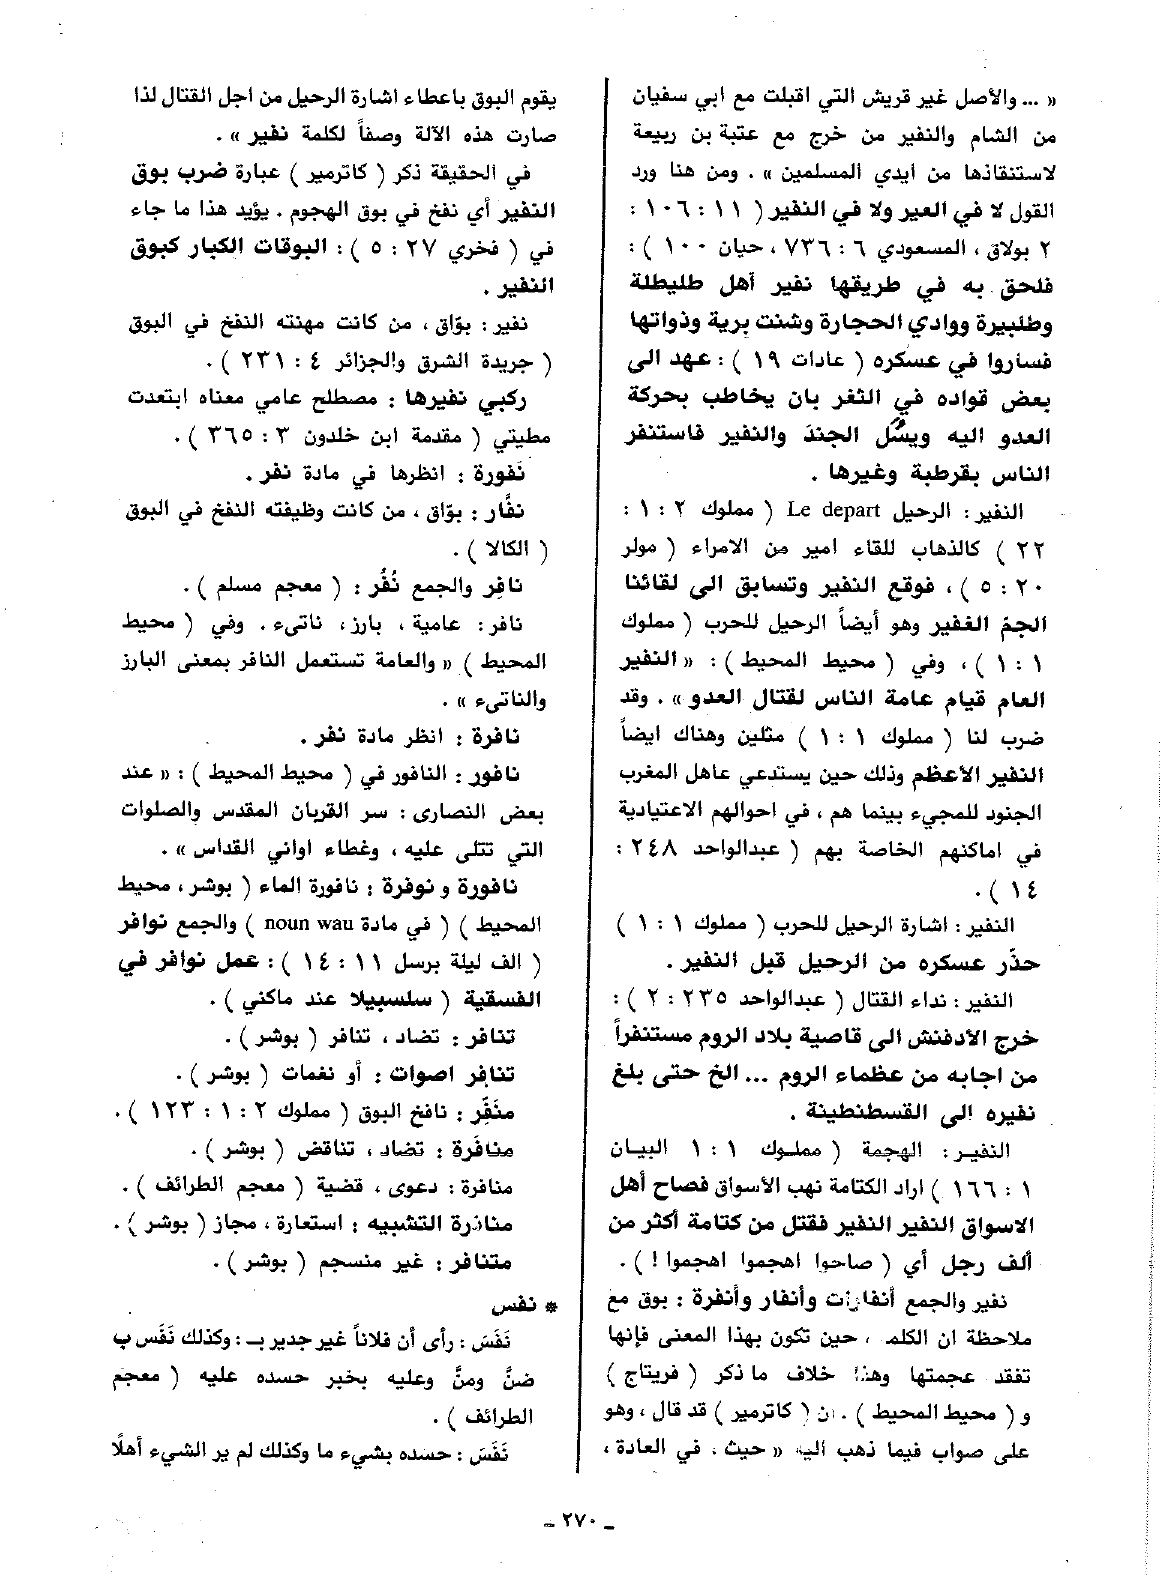 « ... والأصل غير قريش التي اقبلت مع ابي سفيان
من الشام والنفير من خرج مع عتبة بن ربيعة
لاستنقاذها من أيدي المسلمين » . ومن هنا ورد
القول لا في العير ولا في النفير ( ١١ : ١٠٦ :
٢ بولاق ، المسعودي ٦ : ٧٣٦ ، حيان ١٠٠ ) :
فلحق به في طريقها نفير أهل طليطلة
وطلبيرة ووادي الحجارة وشنت برية وذواتها
فساروا في عسكره ( عادات ١٩ ) : عهد الى
بعض قواده في الثغر بان يخاطب بحركة
العدو اليه ويسُل الجند والنفير فاستنفر
الناس بقرطبة وغيرها .
النفير : الرحيل Le depart ( مملوك ٢ : ١ :
٢٢ ) كالذهاب للقاء امير من الامراء ( مولر
٢٠ : ٥ ) ، فوقع النفير وتسابق الى لقائنا
الجم الغفير وهو أيضاً الرحيل للحرب ( مملوك
١ : ١ ) ، وفي ( محيط المحيط ) : « النفير
العام قيام عامة الناس لقتال العدو » . وقد
ضرب لنا ( مملوك ١ : ١ ) مثلين وهناك ايضاً
النفير الأعظم وذلك حين يستدعي عاهل المغرب
الجنود للمجيء بينما هم ، في احوالهم الاعتيادية
في اماكنهم الخاصة بهم ( عبدالواحد ٢٤٨ :
١٤ ) .
النفير : اشارة الرحيل للحرب ( مملوك ١ : ١ )
حذّر عسكره من الرحيل قبل النفير .
النفير : نداء القتال ( عبدالواحد ٢٣٥ : ٢ ) :
خرج الأدفنش الى قاصية بلاد الروم مستنفراً
من اجابه من عظماء الروم ... الخ حتى بلغ
نفيره الى القسطنطينة .
النفيـر : الهجمة ( مملـوك ١ : ١ البيـان
١ : ١٦٦ ) اراد الكتامة نهب الأسواق فصاح أهل
الاسواق النفير النفير فقتل من كتامة أكثر من
ألف رجل أي ( صاحوا اهجموا اهجموا ! ) .
نفير والجمع أنفارات وأنفار وأنفرة : بوق مع
ملاحظة ان الكلمـ ، حين تكون بهذا المعنى فإنها
تفقد عجمتها وهذا خلاف ما ذكر ( فريتاج )
و ( محيط المحيط ) . ان ( كاترمير ) قد قال ، وهو
على صواب فيما ذهب اليه « حيث ، في العادة ،
يقوم البوق باعطاء اشارة الرحيل من اجل القتال لذا
صارت هذه الآلة وصفاً لكلمة نفير » .
في الحقيقة ذكر ( كاترمير ) عبارة ضرب بوق
النفير أي نفخ في بوق الهجوم . يؤيد هذا ما جاء
في ( فخري ٢٧ : ٥ ) : البوقات الكبار كبوق
النفير .
نفير : بوّاق ، من كانت مهنته النفخ في البوق
( جريدة الشرق والجزائر ٤ : ٢٣١ ) .
ركبي نفيرها : مصطلح عامي معناه ابتعدت
مطيتي ( مقدمة ابن خلدون ٣ : ٣٦٥ ) .
نَفورة : انظرها في مادة نفر .
نفَّار : بوّاق ، من كانت وظيفته النفخ في البوق
( الكالا ) .
نافِر والجمع نُفُر : ( معجم مسلم ) .
نافر : عامية ، بارز ، ناتىء . وفي ( محيط
المحيط ) « والعامة تستعمل النافر بمعنى البارز
والناتىء » .
نافرة : انظر مادة نفر .
نافور : النافور في ( محيط المحيط ) : « عند
بعض النصارى : سر القربان المقدس والصلوات
التي تتلى عليه ، وغطاء اواني القداس » .
نافورة و نوفرة : نافورة الماء ( بوشر ، محيط
المحيط ) ( في مادة noun wau ) والجمع نوافر
( الف ليلة برسل ١١ : ١٤ ) : عمل نوافر في
الفسقية ( سلسبيلا عند ماكني ) .
تنافر : تضاد ، تنافر ( بوشر ) .
تنافر اصوات : أو نغمات ( بوشر ) .
منَفِّر : نافخ البوق ( مملوك ٢ : ١ : ١٢٣ ) .
منافَرة : تضاد ، تناقض ( بوشر ) .
منافرة : دعوى ، قضية ( معجم الطرائف ) .
منافرة التشبيه : استعارة ، مجاز ( بوشر ) .
متنافر : غير منسجم ( بوشر ) .
* نفس
نَفَسَ : رأى أن فلاناً غير جدير بـ : وكذلك نَفَس ب
ضنَّ ومنَّ وعليه بخبر حسده عليه ( معجم
الطرائف ) .
نَفَسَ : حسده بشيء ما وكذلك لم ير الشيء أهلًا
ـ ٢٧٠ ـ